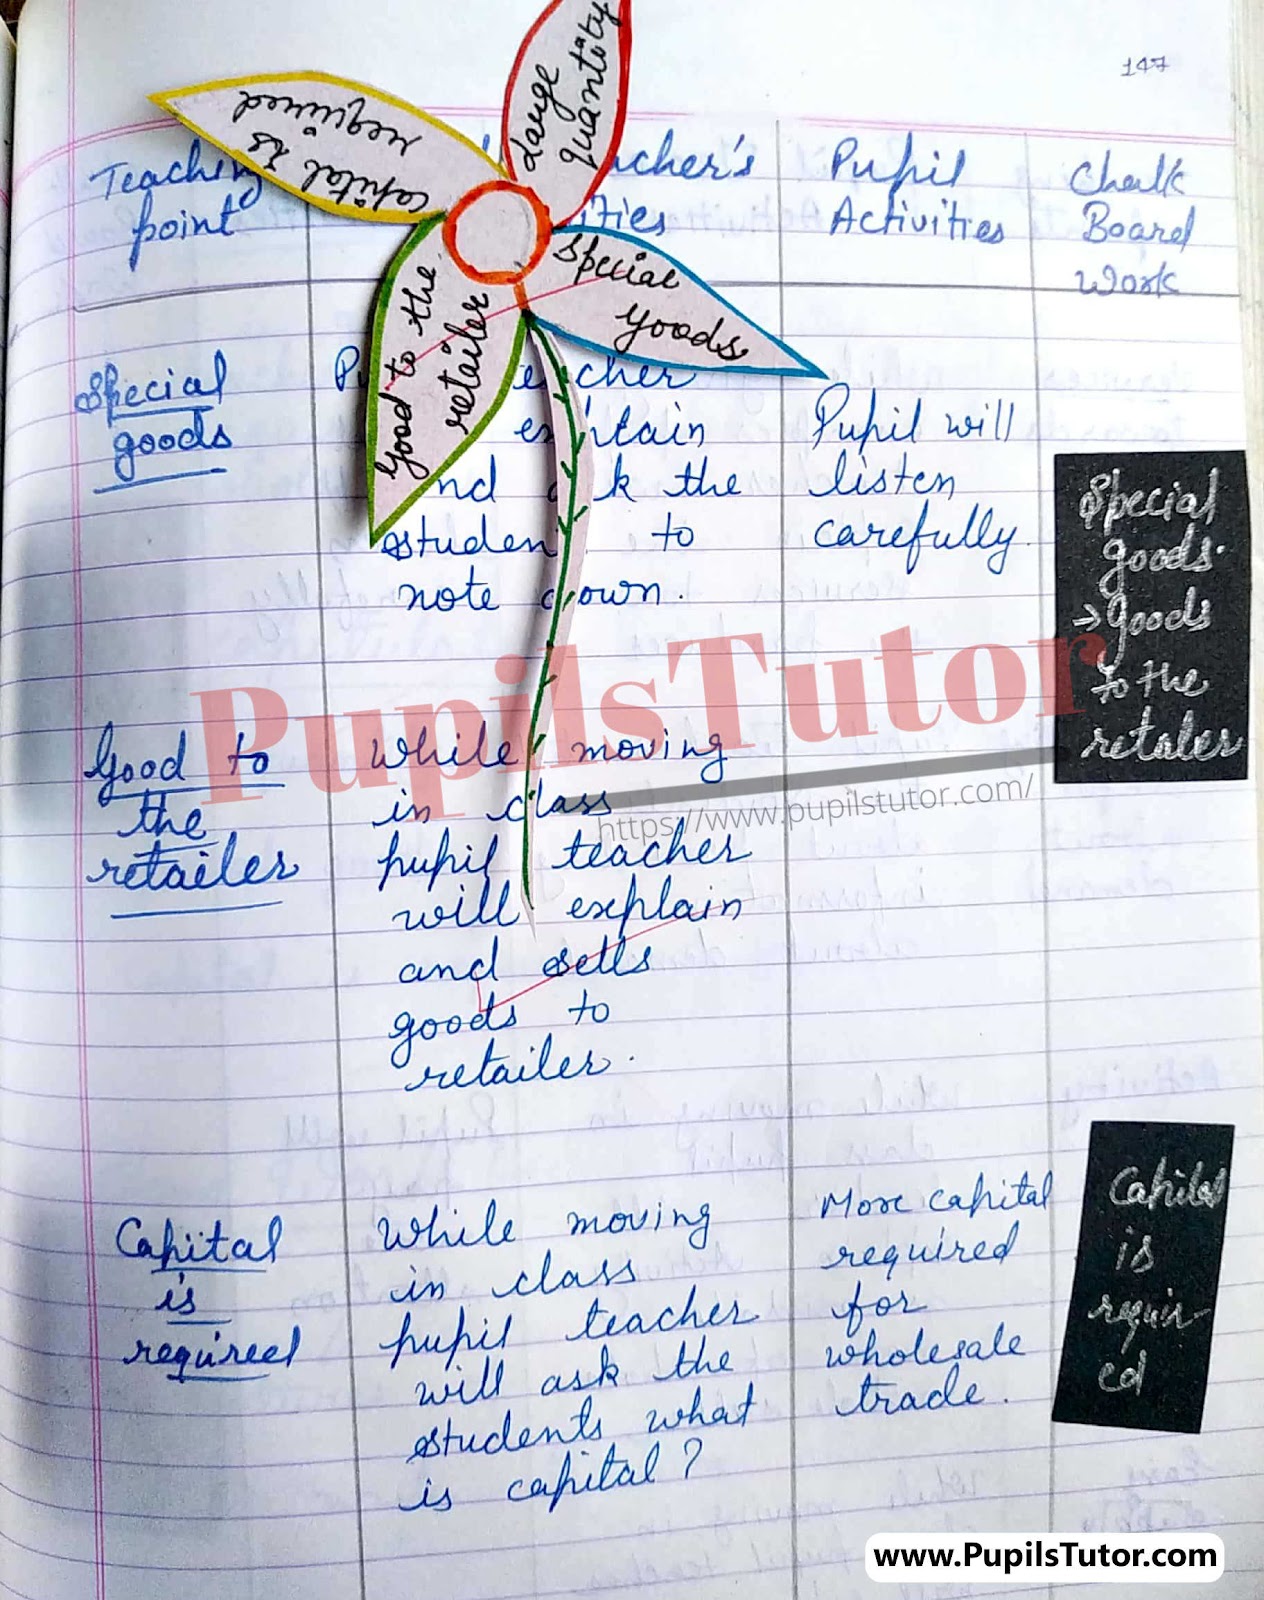 147
capital is
required
Large
quantity
Special
goods
Good to the
retailer
Teaching
point
Pupil
Activities
Chalk
Board
Work
Special
goods
explain
the
to
note down.
Pupil will
listen
carefully.
Special
goods.
→ goods
to the
retaler
PupilsTutor
https://www.pupilstutor.com/
Good to
the
retailer
While moving
in class
pupil teacher
will explain
and sells
goods to
retailer.
Capital
is
required
While moving
in class
pupil teacher
will ask the
students what
is capital?
More capital
required
for
wholesale
trade.
Capital
is
requir
ed
www.PupilsTutor.com